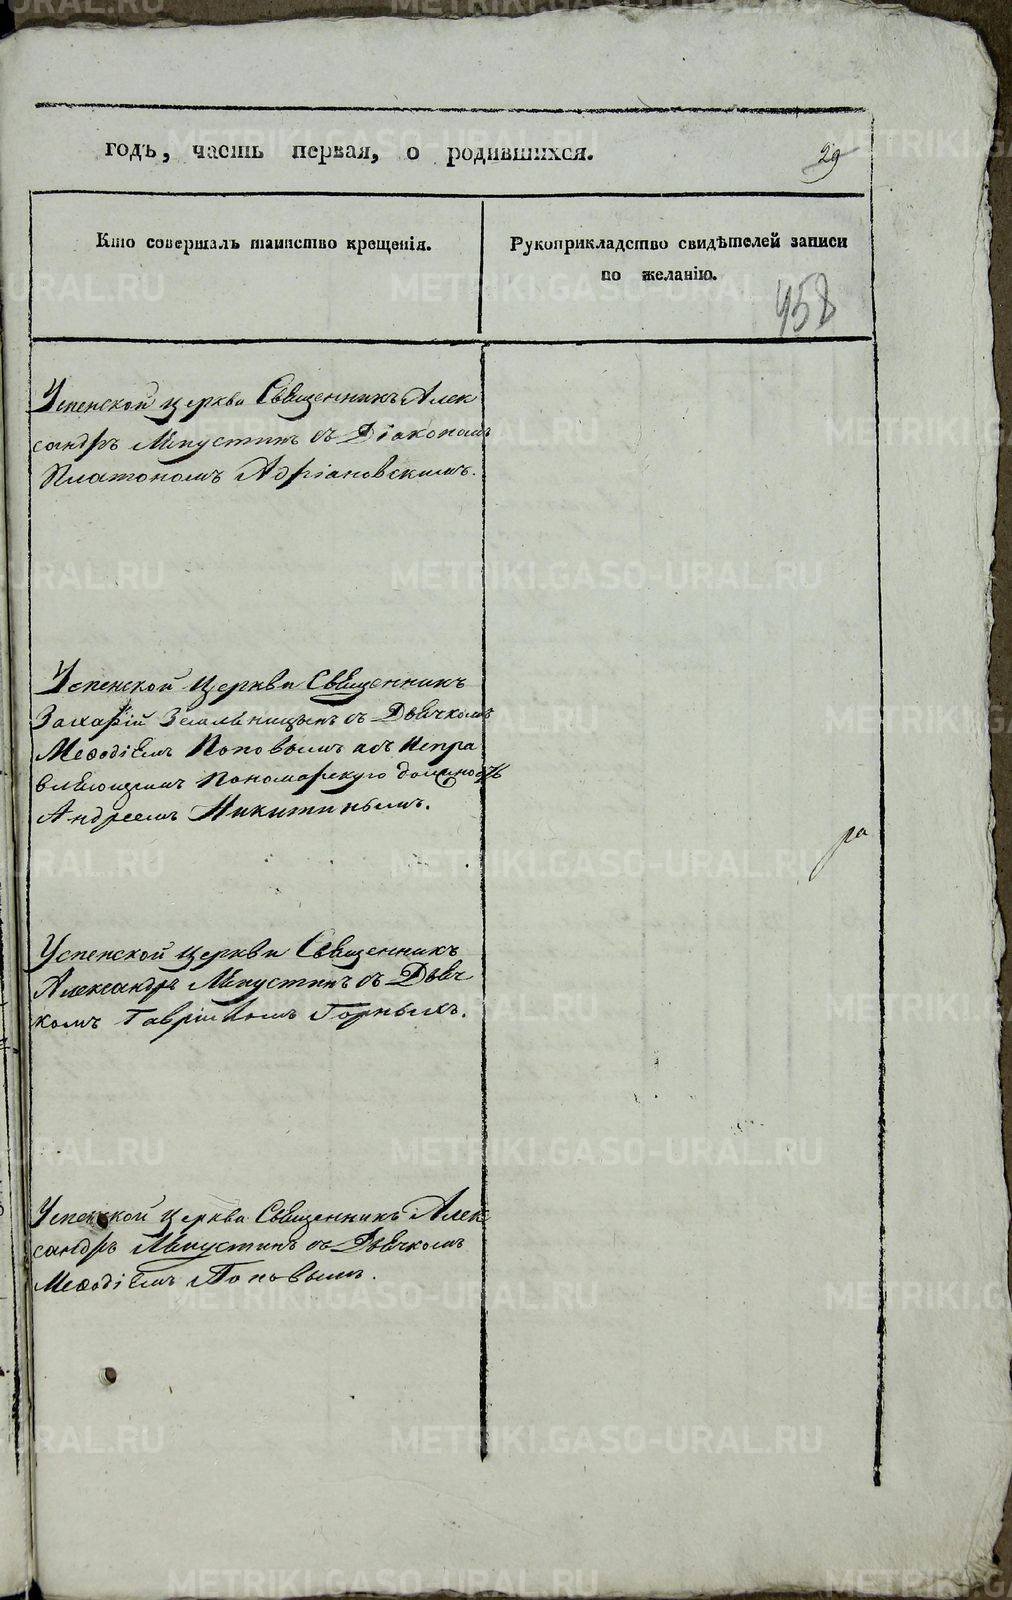 годъ, часть первая, о родившихся.
29
Кто совершалъ таинство крещенія.
Рукоприкладство свидѣтелей записи
по желанію.
458
Успенской церкви Священникъ Алек
сандръ Мѣпустинъ съ Діакономъ
Платономъ Адріановскимъ.
Успенской церкви Священникъ
Захарій Земляницынъ съ Дьячкомъ
Меѳодіемъ Поповымъ
Пономарскую должность
Андреемъ Никитинымъ.
ра
Успенской церкви Священникъ
Александръ Мѣпустинъ съ Дьяч
комъ Гавріиломъ Горныхъ.
Успенской церкви Священникъ Алек
сандръ Мѣпустинъ съ Дьячкомъ
Меѳодіемъ Поповымъ.
METRIKI.GASO-URAL.RU